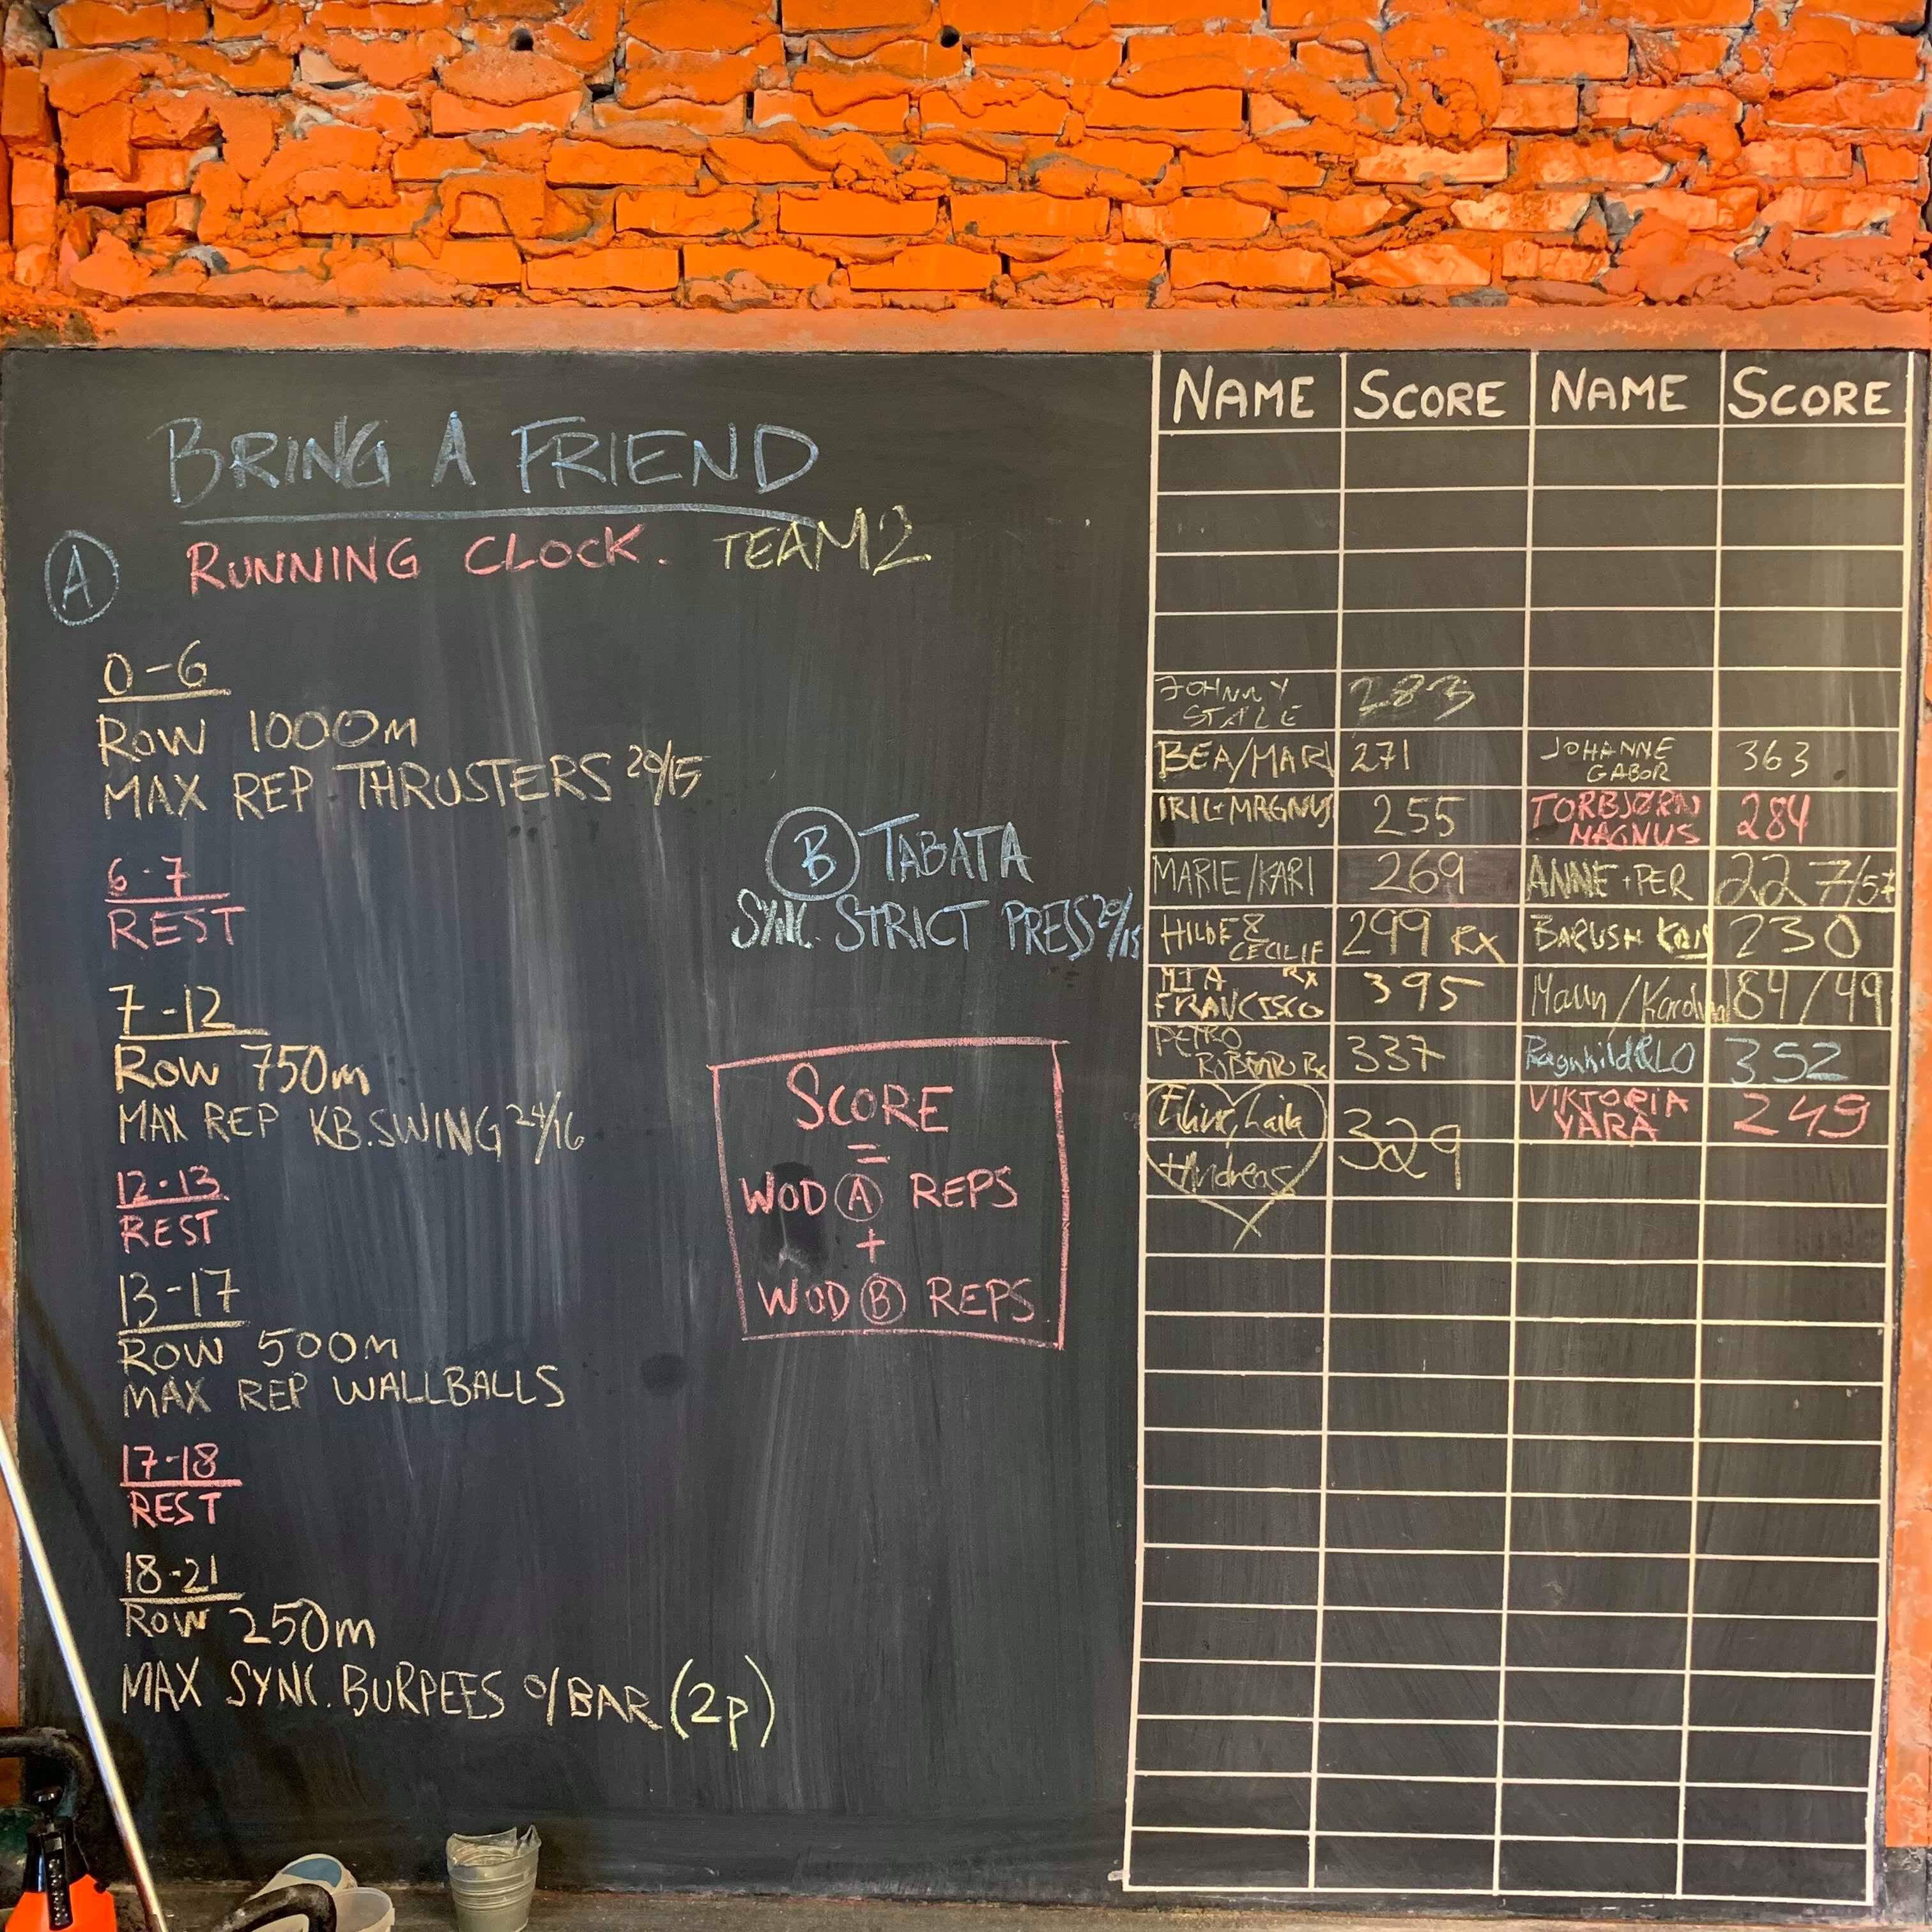 BRING A FRIEND
A RUNNING CLOCK. TEAM 2
0-6
ROW 1000m
MAX REP THRUSTERS 20/15
6-7
REST
7-12
ROW 750m
MAX REP KB.SWING 24/16
12-13
REST
13-17
ROW 500m
MAX REP WALLBALLS
17-18
REST
18-21
ROW 250m
MAX SYNC. BURPEES O/BAR (2p)
B TABATA
SYNC. STRICT PRESS 20/15
SCORE
=
WOD A REPS
+
WOD B REPS
NAME SCORE NAME SCORE
JOHNNY
STÅLE 283
BEA/MARI 271
JOHANNE
GABOR 363
IRIL+MAGNUS 255
TORBJØRN
MAGNUS 284
MARIE/KARI 269
ANNE+PER 227/57
HILDE &
CECILIE 299 RX
BARUSH KRIS 230
MIA RX
FRANCISCO 395
/Karolina 184/49
PETRO
ROBERTO Rx 337
Ragnhild&LO 352
Laila
Andreas 329
VIKTORIA
YARA 249